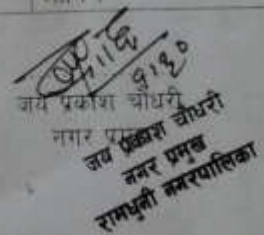 जय प्रकाश चौधरी
नगर प्रमुख
जय प्रकाश चौधरी
नगर प्रमुख
रामधुनी नगरपालिका